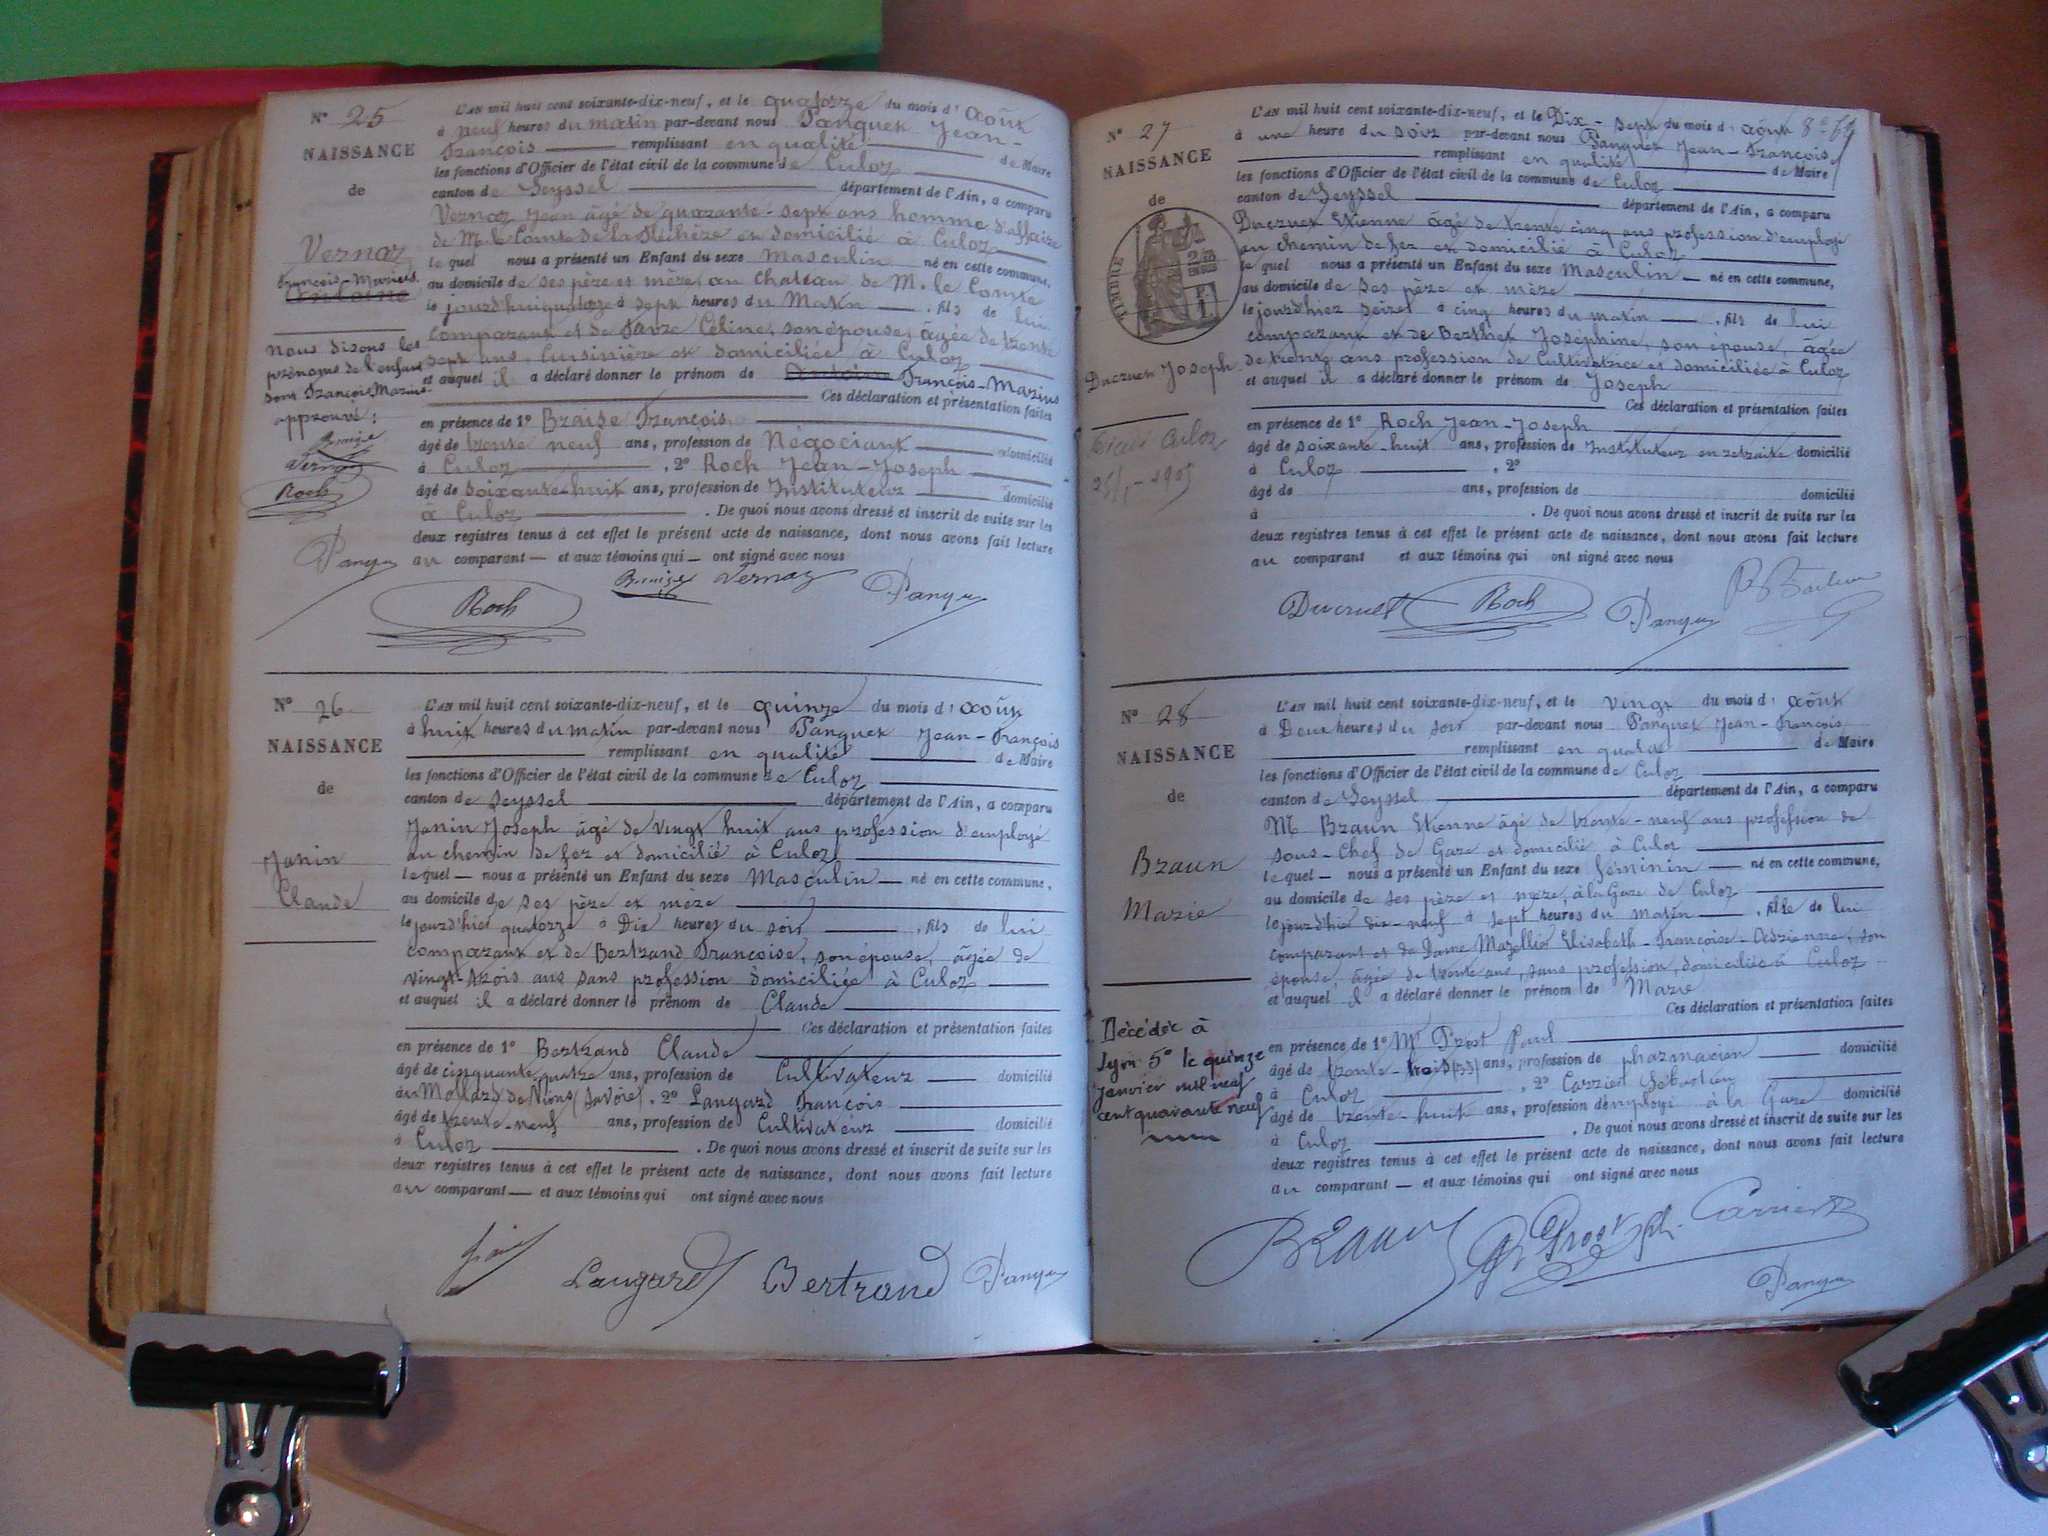 N° 25
NAISSANCE
de
Vernaz
François-Marius
Antoine
Nous disons les
prénoms de l'enfant
sont François Marius
approuvé :
Vernaz
Roch
Panguy
L'AN mil huit cent soixante-dix-neuf, et le quatorze du mois d'Août
à neuf heures du matin par-devant nous Panguet Jean-
François remplissant en qualité de Maire
les fonctions d'Officier de l'état civil de la commune de Culoz
canton de Seyssel département de l'Ain, a comparu
Vernaz Jean âgé de quarante-sept ans homme d'affaire
de M. le Comte de la Fléchère et domicilié à Culoz
lequel nous a présenté un Enfant du sexe Masculin né en cette commune,
au domicile de ses père et mère, au chateau de M. le Comte
le jourd'hui quatorze à sept heures du Matin , fils de lui
comparant et de Céline, son épouse, agée de trente
sept ans, Cuisinière et domiciliée à Culoz
et auquel il a déclaré donner le prénom de Antoine François-Marius
Ces déclaration et présentation faites
en présence de 1° Braise François
âgé de trente neuf ans, profession de Négociant domicilié
à Culoz , 2° Roch Jean-Joseph
âgé de soixante-huit ans, profession de Instituteur domicilié
à Culoz . De quoi nous avons dressé et inscrit de suite sur les
deux registres tenus à cet effet le présent acte de naissance, dont nous avons fait lecture
au comparant — et aux témoins qui — ont signé avec nous
Roch Vernaz Panguy
N° 26
NAISSANCE
de
Janin
Claude
L'AN mil huit cent soixante-dix-neuf, et le quinze du mois d'Août
à huit heures du matin par-devant nous Panguet Jean-François
remplissant en qualité de Maire
les fonctions d'Officier de l'état civil de la commune de Culoz
canton de Seyssel département de l'Ain, a comparu
Janin Joseph âgé de vingt huit ans profession d'employé
au chemin de fer et domicilié à Culoz
lequel — nous a présenté un Enfant du sexe Masculin — né en cette commune,
au domicile de ses père et mère
le jourd'hier quatorze à Dix heures du soir , fils de lui
comparant et de Bertrand Françoise, son épouse, âgée de
vingt-trois ans sans profession domiciliée à Culoz
et auquel il a déclaré donner le prénom de Claude
Ces déclaration et présentation faites
en présence de 1° Bertrand Claude
âgé de cinquante quatre ans, profession de Cultivateur domicilié
au Mollard de Vions (Savoie) , 2° Langard François
âgé de trente-neuf ans, profession de Cultivateur domicilié
à Culoz . De quoi nous avons dressé et inscrit de suite sur les
deux registres tenus à cet effet le présent acte de naissance, dont nous avons fait lecture
au comparant — et aux témoins qui ont signé avec nous
Langard Bertrand Panguy
N° 27
NAISSANCE
de
TIMBRE
Ducruet Joseph
Culoz
L'AN mil huit cent soixante-dix-neuf, et le Dix-sept du mois d'Août
à une heure du soir par-devant nous Panguet Jean-François
remplissant en qualité de Maire
les fonctions d'Officier de l'état civil de la commune de Culoz
canton de Seyssel département de l'Ain, a comparu
Ducruet Etienne âgé de trente cinq ans profession d'employé
au chemin de fer et domicilié à Culoz
lequel nous a présenté un Enfant du sexe Masculin — né en cette commune,
au domicile de ses père et mère
le jourd'hier seize à cinq heures du matin , fils de lui
comparant et de Berthet Joséphine, son épouse, âgée
de trente ans profession de Cultivatrice et domiciliée à Culoz
et auquel il a déclaré donner le prénom de Joseph
Ces déclaration et présentation faites
en présence de 1° Roch Jean-Joseph
âgé de soixante-huit ans, profession de Instituteur en retraite domicilié
à Culoz , 2°
âgé de ans, profession de domicilié
à . De quoi nous avons dressé et inscrit de suite sur les
deux registres tenus à cet effet le présent acte de naissance, dont nous avons fait lecture
au comparant et aux témoins qui ont signé avec nous
Ducruet Roch Panguy
N° 28
NAISSANCE
de
Braun
Marie
Décédée à
Lyon 5° le quinze
janvier mil neuf
cent quarante neuf
L'AN mil huit cent soixante-dix-neuf, et le vingt du mois d'Août
à Deux heures du soir par-devant nous Panguet Jean-François
remplissant en qualité de Maire
les fonctions d'Officier de l'état civil de la commune de Culoz
canton de Seyssel département de l'Ain, a comparu
M. Braun Etienne âgé de trente-neuf ans profession de
sous-Chef de Gare et domicilié à Culoz
lequel — nous a présenté un Enfant du sexe féminin — né en cette commune,
au domicile de ses père et mère, à la Gare de Culoz
le jourd'hier dix-neuf à sept heures du matin , fille de lui
comparant et de Dame Mazellier Elisabeth-Françoise-Adrienne, son
épouse, âgée de trente ans, sans profession, domiciliée à Culoz
et auquel il a déclaré donner le prénom de Marie
Ces déclaration et présentation faites
en présence de 1° Mr Prost Paul
âgé de trente-trois (33) ans, profession de pharmacien domicilié
à Culoz , 2° Carrier Sébastien
âgé de trente-huit ans, profession d'employé à la Gare domicilié
à Culoz . De quoi nous avons dressé et inscrit de suite sur les
deux registres tenus à cet effet le présent acte de naissance, dont nous avons fait lecture
au comparant — et aux témoins qui ont signé avec nous
Braun Prost Carrier
Panguy